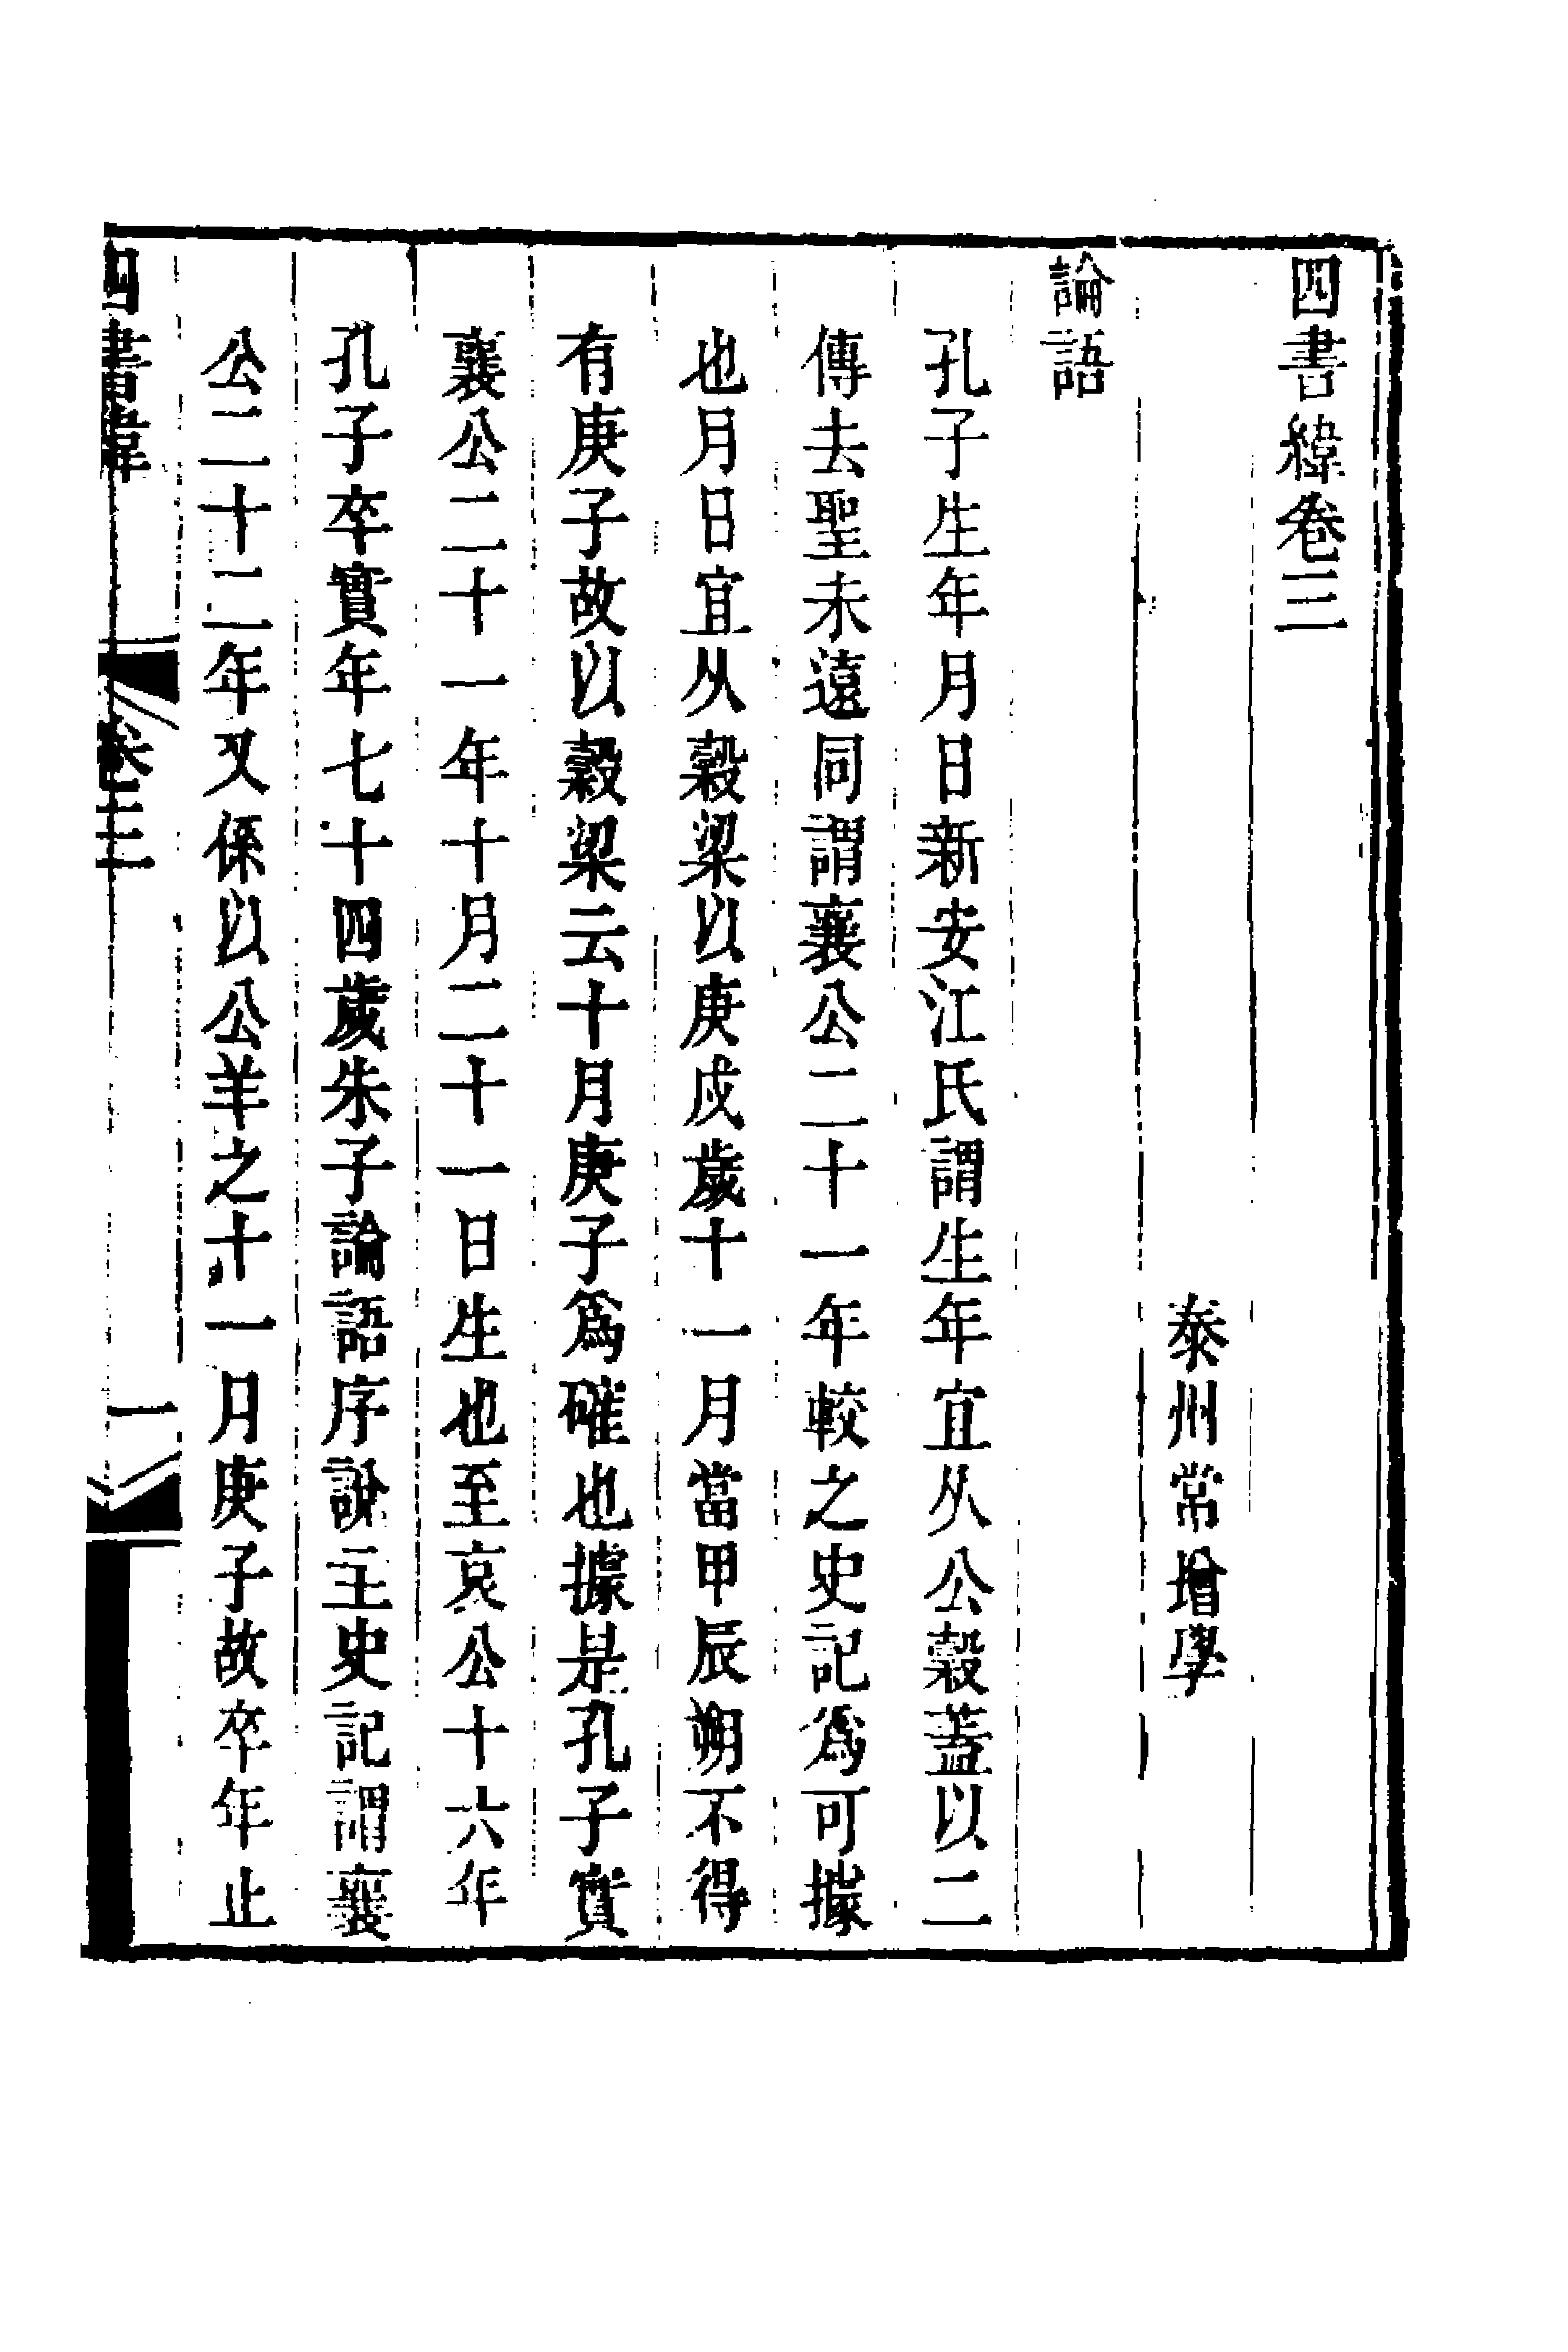 四書緯卷三
泰州常增學
論語
孔子生年月日新安江氏謂生年宜从公穀蓋以二
傳去聖未遠同謂襄公二十一年較之史記爲可據
也月日宜从穀梁以庚戌歲十一月當甲辰朔不得
有庚子故以穀梁云十月庚子爲確也據是孔子實
襄公二十一年十月二十一日生也至哀公十六年
孔子卒實年七十四歲朱子論語序說主史記謂襄
公二十二年又係以公羊之十一月庚子故卒年止
四書緯
卷三
一